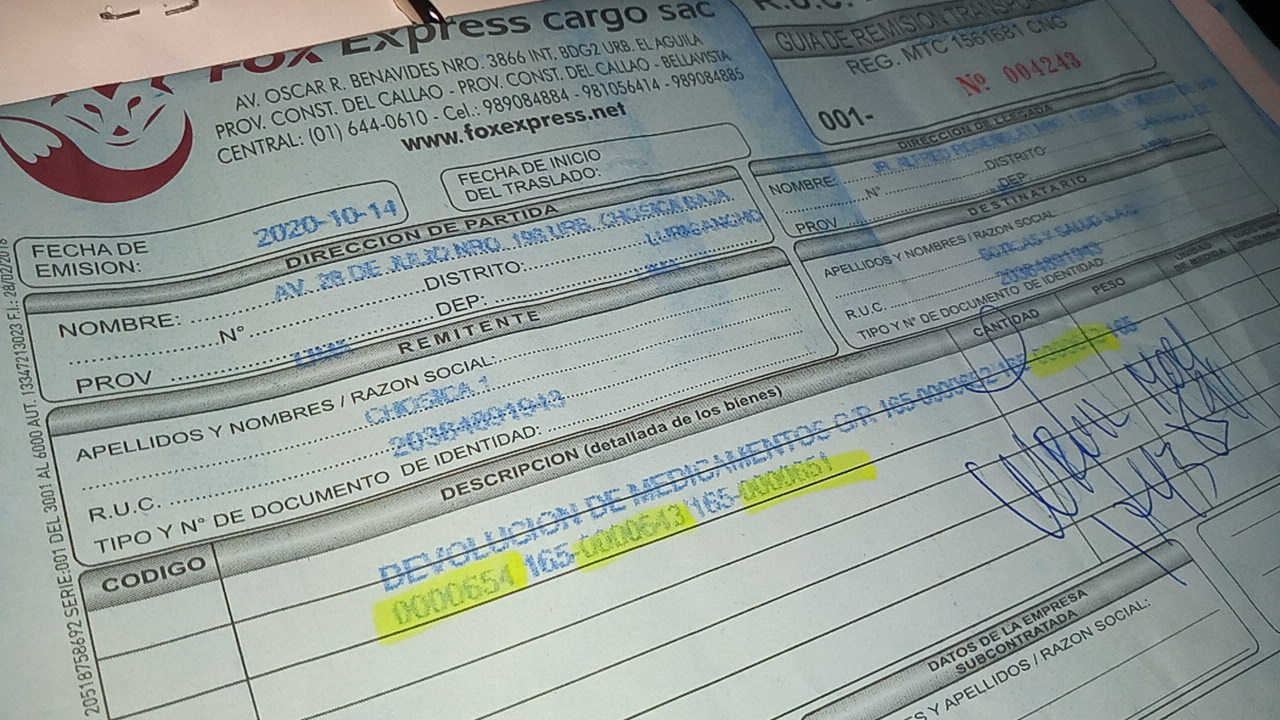 FOX Express cargo sac
AV. OSCAR R. BENAVIDES NRO. 3866 INT. BDG2 URB. EL AGUILA
PROV. CONST. DEL CALLAO - PROV. CONST. DEL CALLAO - BELLAVISTA
CENTRAL: (01) 644-0610 - Cel.: 989084884 - 981056414 - 989084885
www.foxexpress.net
R.U.C.
GUIA DE REMISION
REG. MTC 1561681 CNG
001-
Nº 004243
FECHA DE EMISION: 2020-10-14
FECHA DE INICIO DEL TRASLADO:
DIRECCION DE PARTIDA
AV. 28 DE JULIO NRO. 198 URB. CHOSICA BAJA.
NOMBRE:
N° DISTRITO: LURIGANCHO
PROV LIMA DEP:
DIRECCION DE LLEGADA
NOMBRE: JR. ALFRED
N° DISTRITO:
PROV DEP:
REMITENTE
APELLIDOS Y NOMBRES / RAZON SOCIAL:
CHOSICA 1
R.U.C.
TIPO Y N° DE DOCUMENTO DE IDENTIDAD:
DESTINATARIO
APELLIDOS Y NOMBRES / RAZON SOCIAL
BOTICAS Y SALUD SAC
R.U.C.
TIPO Y N° DE DOCUMENTO DE IDENTIDAD:
CODIGO DESCRIPCION (detallada de los bienes) CANTIDAD PESO
DEVOLUCION DE MEDICAMENTOS G/R 165-0000652 165
0000654 165-0000643 165-0000651
DATOS DE LA EMPRESA SUBCONTRATADA
S Y APELLIDOS / RAZON SOCIAL:
20518758692 SERIE:001 DEL 3001 AL 6000 AUT. 13347213023 F.I.: 28/02/2018